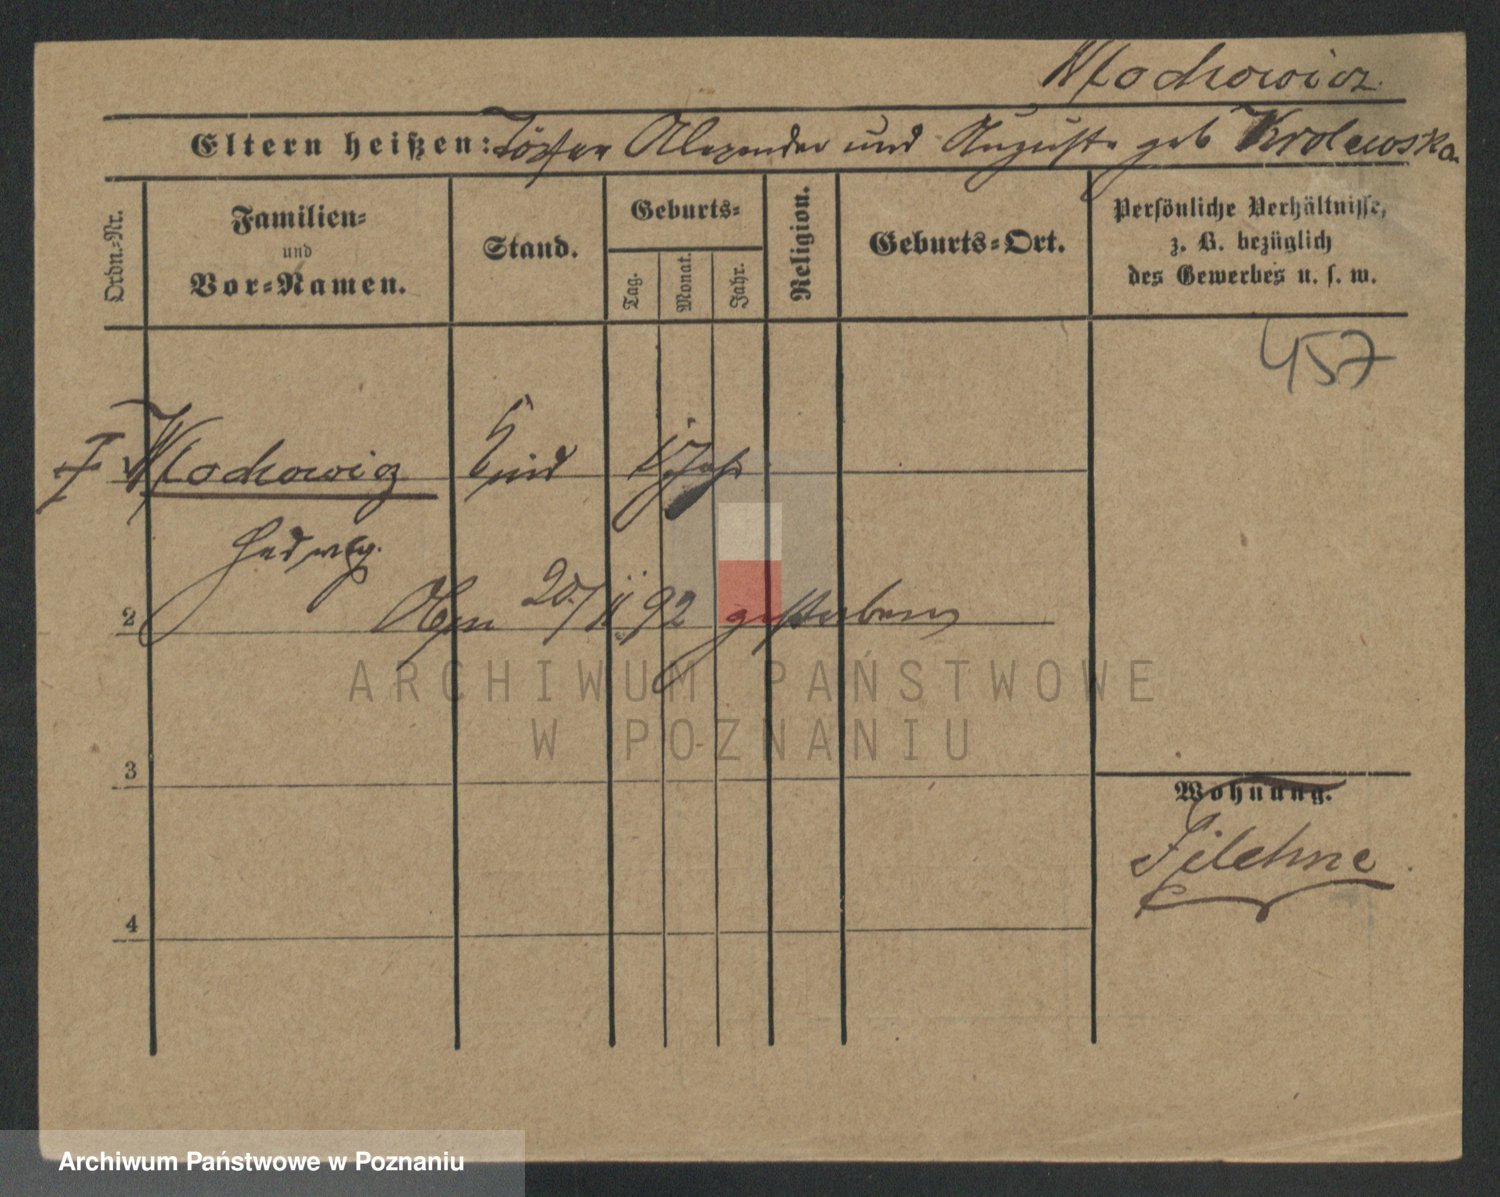 Wlochowicz
Eltern heißen: Töpfer Alexander und Auguste geb Krolewska
Ordn.-Nr.
Familien-
und
Vor-Namen.
Stand.
Geburts-
Tag.
Monat.
Jahr.
Religion.
Geburts-Ort.
Persönliche Verhältnisse,
z. B. bezüglich
des Gewerbes u. s. w.
457
Wlochowicz Kind 1 Jahr
Hedwig
2 20/11 92 gestorben
ARCHIWUM PAŃSTWOWE
W POZNANIU
3
Wohnung.
Filehne
4
Archiwum Państwowe w Poznaniu